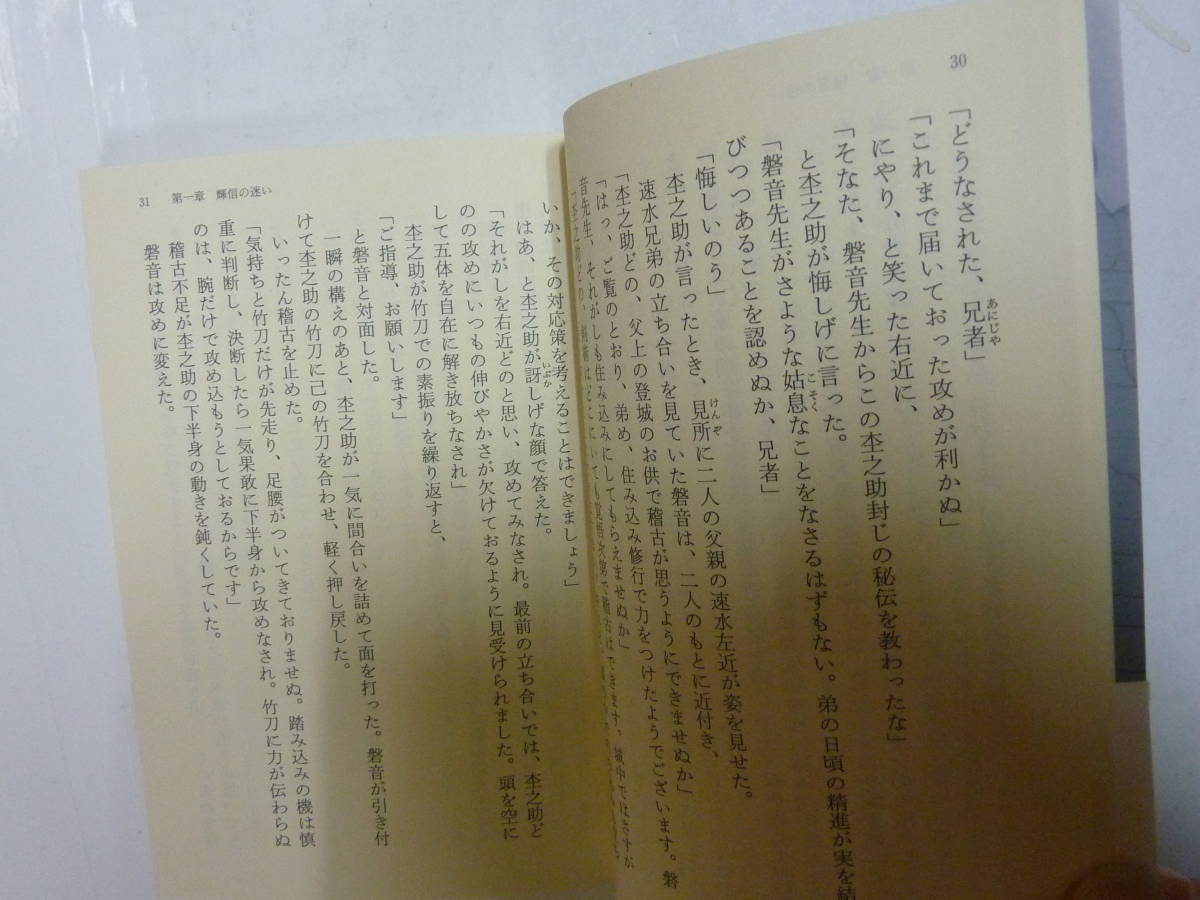 30
「どうなされた、兄者」
あにじや
「これまで届いておった攻めが利かぬ」
にやり、と笑った右近に、
「そなた、磐音先生からこの杢之助封じの秘伝を教わったな」
と杢之助が悔しげに言った。
「磐音先生がさような姑息なことをなさるはずもない。弟の日頃の精進が実を結
こそく
びつつあることを認めぬか、兄者」
「悔しいのう」
杢之助が言ったとき、見所に二人の父親の速水左近が姿を見せた。
けんぞ
速水兄弟の立ち合いを見ていた磐音は、二人のもとに近付き、
「杢之助どの、父上の登城のお供で稽古が思うようにできませぬか」
「はっ、ご覧のとおり、弟め、住み込み修行で力をつけたようでございます。磐
音先生、それがしも住み込みにしてもらえませぬか」
31 第一章 輝信の迷い
いか、その対応策を考えることはできましょう」
はあ、と杢之助が訝しげな顔で答えた。
いぶか
「それがしを右近どのと思い、攻めてみなされ。最前の立ち合いでは、杢之助ど
のの攻めにいつもの伸びやかさが欠けておるように見受けられました。頭を空に
して五体を自在に解き放ちなされ」
杢之助が竹刀での素振りを繰り返すと、
「ご指導、お願いします」
と磐音と対面した。
一瞬の構えのあと、杢之助が一気に間合いを詰めて面を打った。磐音が引き付
けて杢之助の竹刀に己の竹刀を合わせ、軽く押し戻した。
いったん稽古を止めた。
「気持ちと竹刀だけが先走り、足腰がついてきておりませぬ。踏み込みの機は慎
重に判断し、決断したら一気果敢に下半身から攻めなされ。竹刀に力が伝わらぬ
のは、腕だけで攻め込もうとしておるからです」
稽古不足が杢之助の下半身の動きを鈍くしていた。
磐音は攻めに変えた。